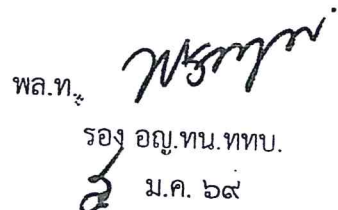 พล.ท.
รอง อญ.ทน.ททบ.
ม.ค. ๖๙